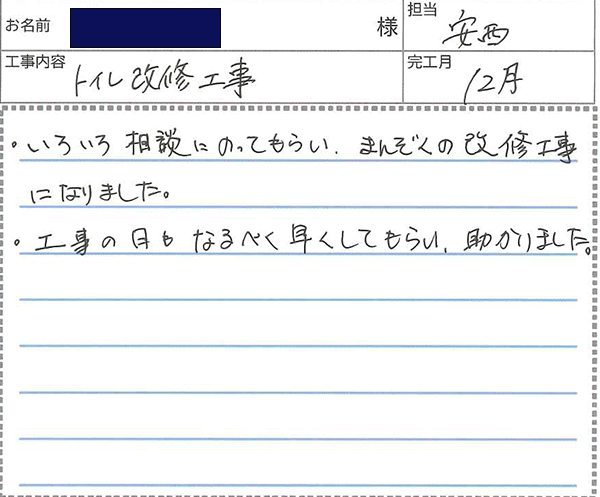 お名前 様 担当 安西
工事内容 トイレ改修工事 完工月 12月
・いろいろ相談にのってもらい、まんぞくの改修工事
になりました。
・工事の日もなるべく早くしてもらい、助かりました。